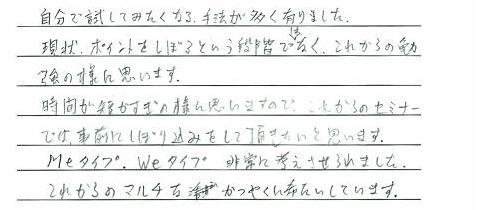 自分で試してみたくなる、手法が多く有りました。
現状、ポイントをしぼるという段階ではなく、これからの勉
強の様に思います。
時間が短かすぎの様に思いますので、これからのセミナー
では、事前にしぼり込みをして頂きたいと思います。
Meタイプ、Weタイプ 非常に考えさせられました。
これからのマルチな かつやくに希たいしています。